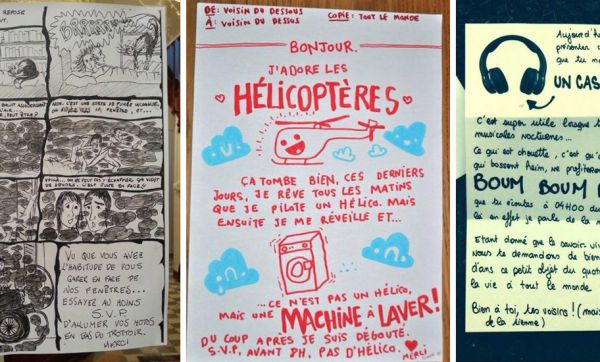 REPOSE
BRRRRRRRR
NON, C'EST UNE SORTE DE FUMÉE INCONNUE,
FENÊTRE, ET...
PEUT ÊTRE?
VOILÀ... ON NE PEUT PAS S'ÉCHAPPER, ÇA VIENT
DE DEHORS. C'EST JUSTE EN FACE!
VU QUE VOUS AVEZ
L'HABITUDE DE VOUS
GARER EN FACE DE
NOS FENÊTRES...
ESSAYEZ AU MOINS
S.V.P.
D'ALLUMER VOS MOTOS
EN BAS DU TROTTOIR.
MERCI
DE: VOISIN DU DESSOUS
À: VOISIN DU DESSUS
COPIE: TOUT LE MONDE
BONJOUR.
J'ADORE LES
HÉLICOPTÈRES
ÇA TOMBE BIEN, CES DERNIERS
JOURS, JE RÊVE TOUS LES MATINS
QUE JE PILOTE UN HÉLICO. MAIS
ENSUITE JE ME RÉVEILLE ET...
...CE N'EST PAS UN HÉLICO,
MAIS UNE MACHINE À LAVER!
DU COUP APRÈS JE SUIS DÉGOUTÉ.
S.V.P, AVANT 8H, PAS D'HÉLICO.
MERCI
Aujourd'h
présenter
que tu me
UN CAS
C'est super utile lorsque t
musicales nocturnes...
Ce qui est chouette, c'est qu'
qui bossent hein, ne profiteron
BOUM BOUM
que tu écoutes à 04H00 du
là en effet je parle de la m
Etant donné que le savoir viv
Nous te demandons de bien
dans ce petit objet du quot
la vie à tout le monde
Bien à toi, tes voisins! (mais
de la tienne)